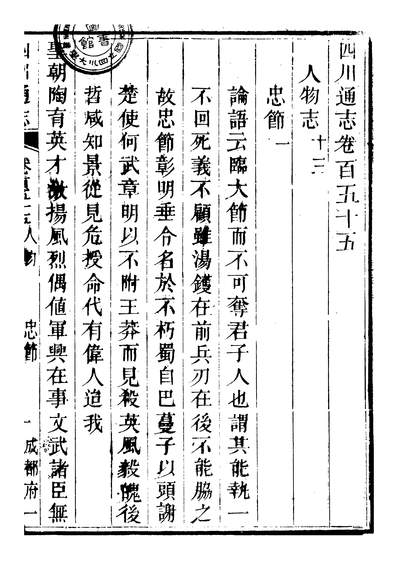 四川通志卷百五十五
人物志十三
忠節一
論語云臨大節而不可奪君子人也謂其能執一
不回死義不顧雖湯鑊在前兵刃在後不能脇之
故忠節彰明垂令名於不朽蜀自巴蔓子以頭謝
楚使何武章明以不附王莽而見殺英風毅魄後
哲咸知景從見危授命代有偉人迨我
聖朝陶育英才激揚風烈偶值軍興在事文武諸臣無
四川通志 人物 忠節一 成都府一